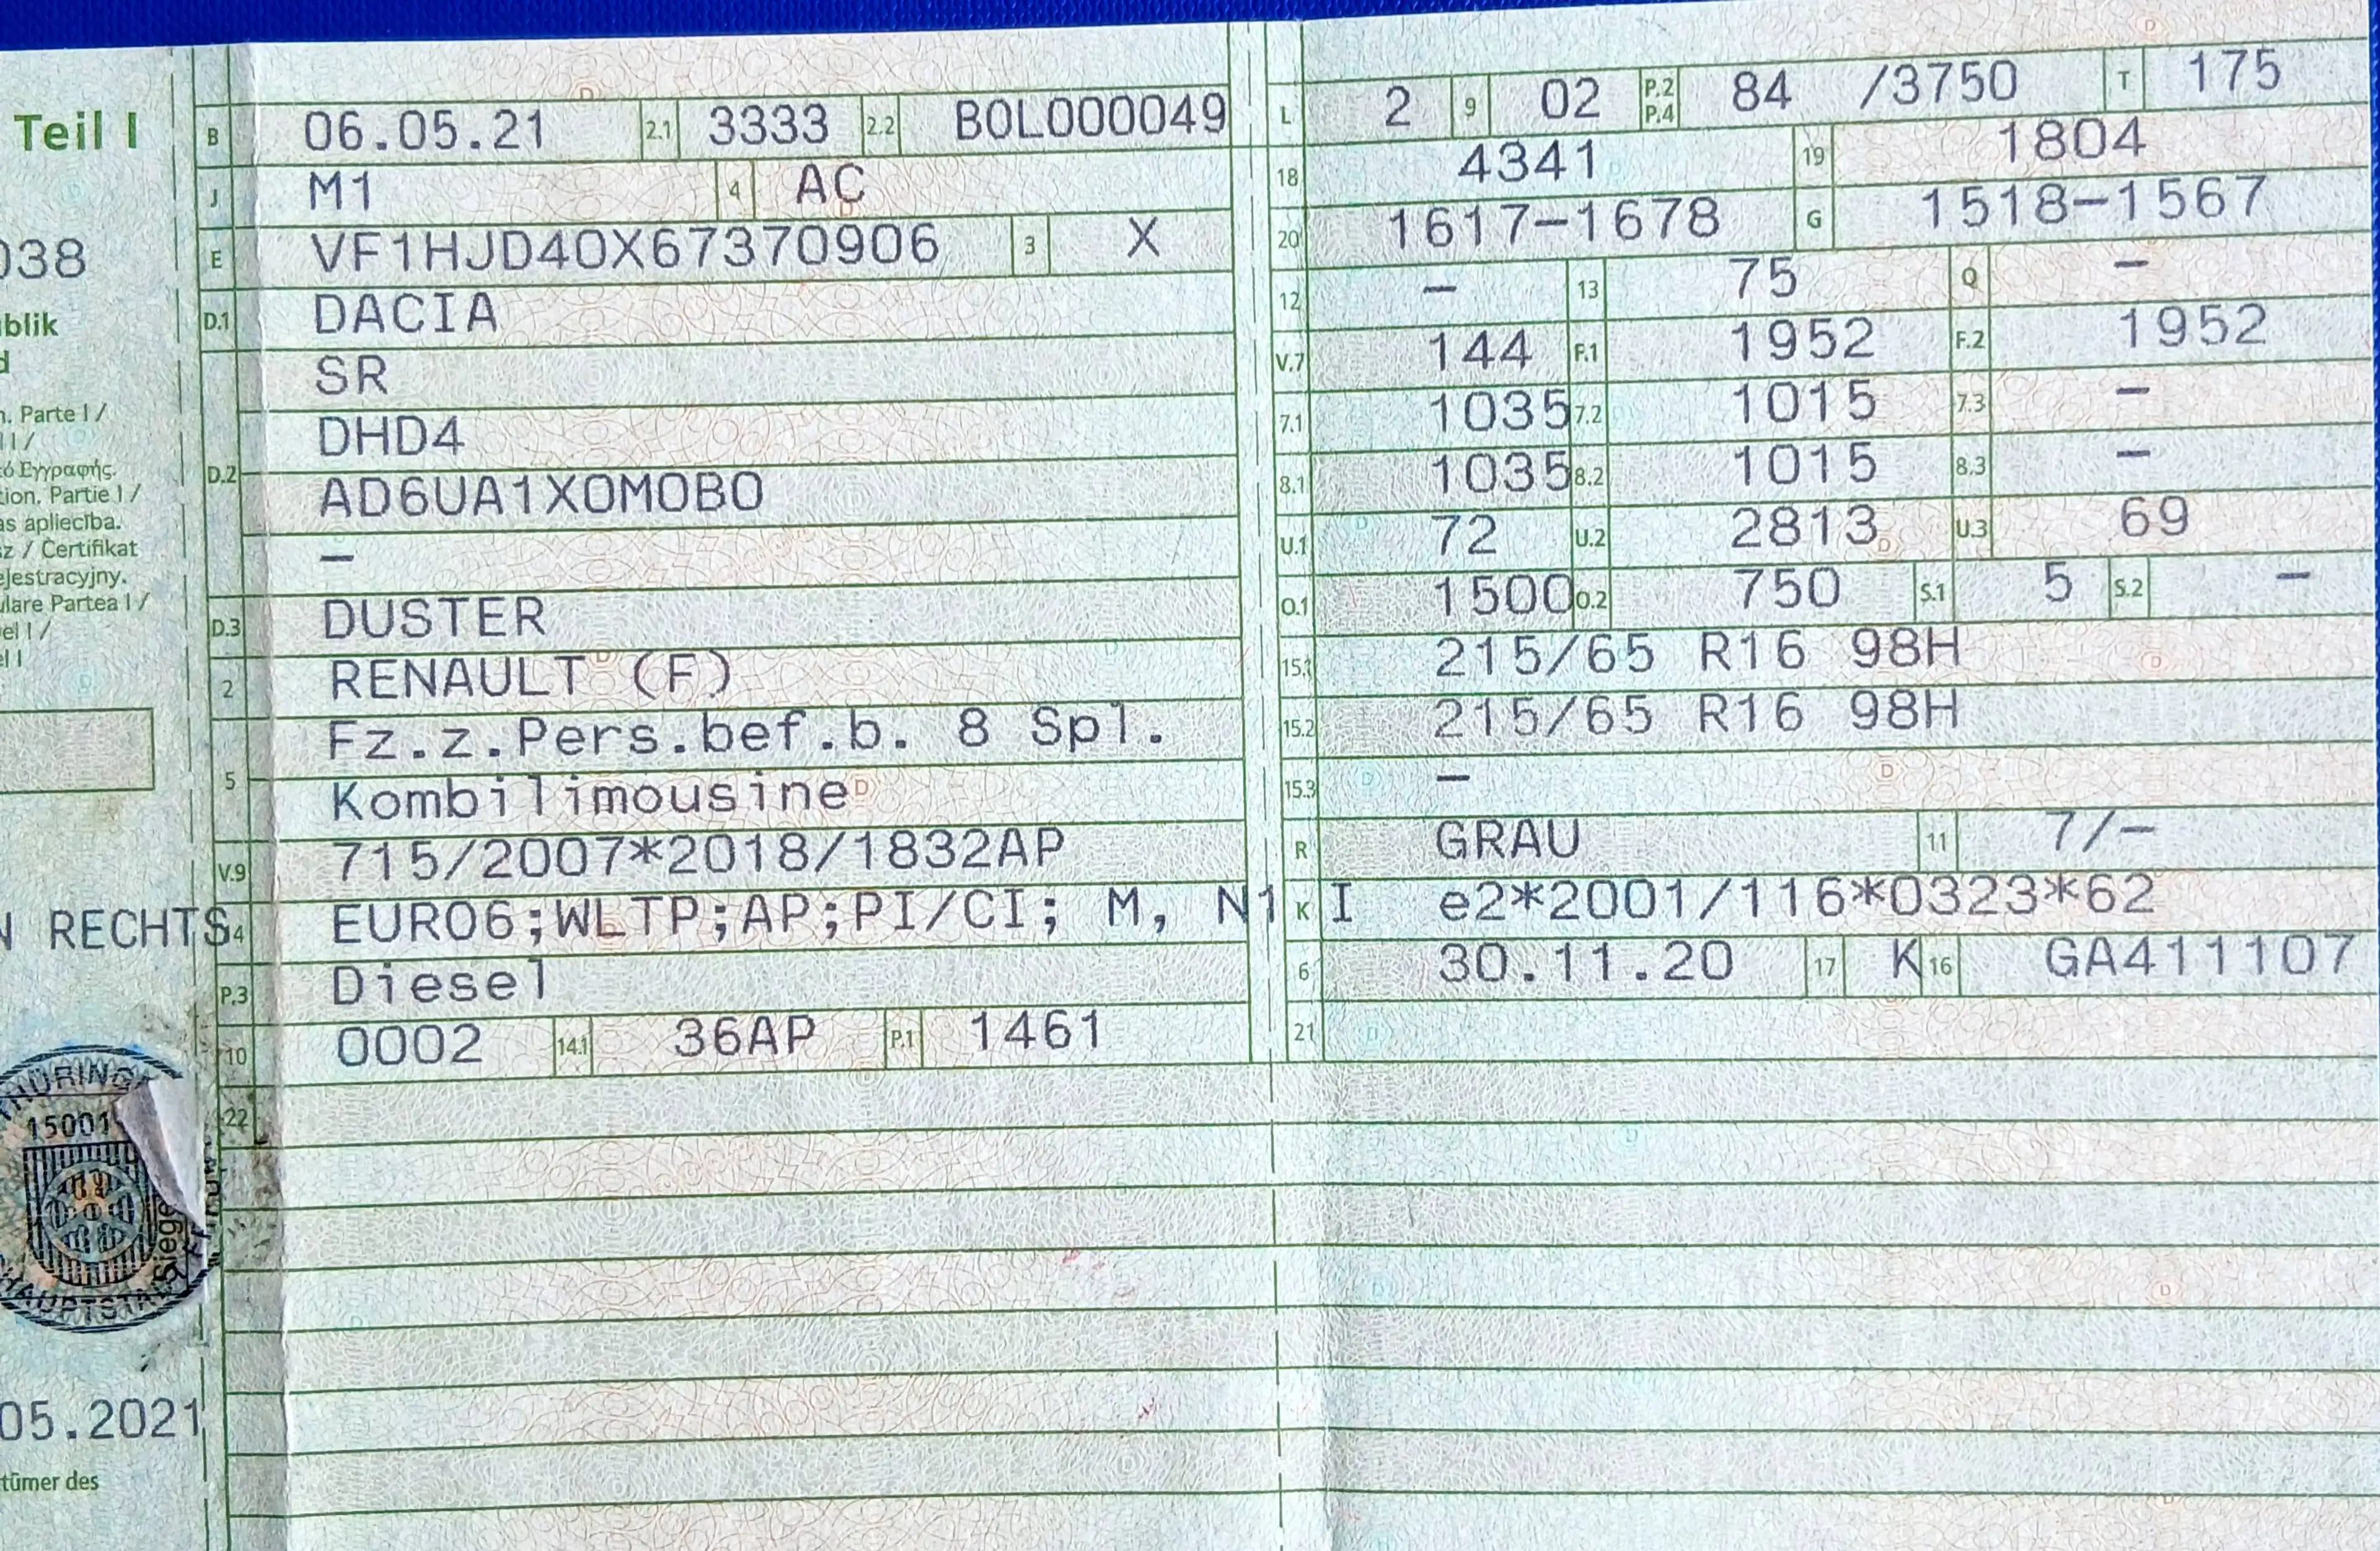 Teil I
038
blik
d
n. Parte I /
l I /
ό Εγγραφής.
tion. Partie I /
as apliecība.
sz / Certifikat
ejestracyjny.
ulare Partea I /
el I /
el I
N RECHTS
THÜRING
15001
Siege
HAUPTSTA
05.2021
tümer des
B 06.05.21 2.1 3333 2.2 BOL000049
J M1 4 AC
E VF1HJD40X67370906 3 X
D.1 DACIA
SR
DHD4
D.2 AD6UA1X0M0B0
–
D.3 DUSTER
2 RENAULT (F)
Fz.z.Pers.bef.b. 8 Spl.
5 Kombilimousine
V.9 715/2007*2018/1832AP
14 EURO6;WLTP;AP;PI/CI; M, N1 I
P.3 Diesel
10 0002 14.1 36AP P.1 1461
22
L 2 9 02 P.2 P.4 84 /3750 T 175
18 4341 19 1804
20 1617–1678 G 1518–1567
12 – 13 75 Q –
V.7 144 F.1 1952 F.2 1952
7.1 1035 7.2 1015 7.3 –
8.1 1035 8.2 1015 8.3 –
U.1 72 U.2 2813 U.3 69
O.1 1500 O.2 750 S.1 5 S.2 –
15.1 215/65 R16 98H
15.2 215/65 R16 98H
15.3 –
R GRAU 11 7/–
K e2*2001/116*0323*62
6 30.11.20 17 K 16 GA411107
21